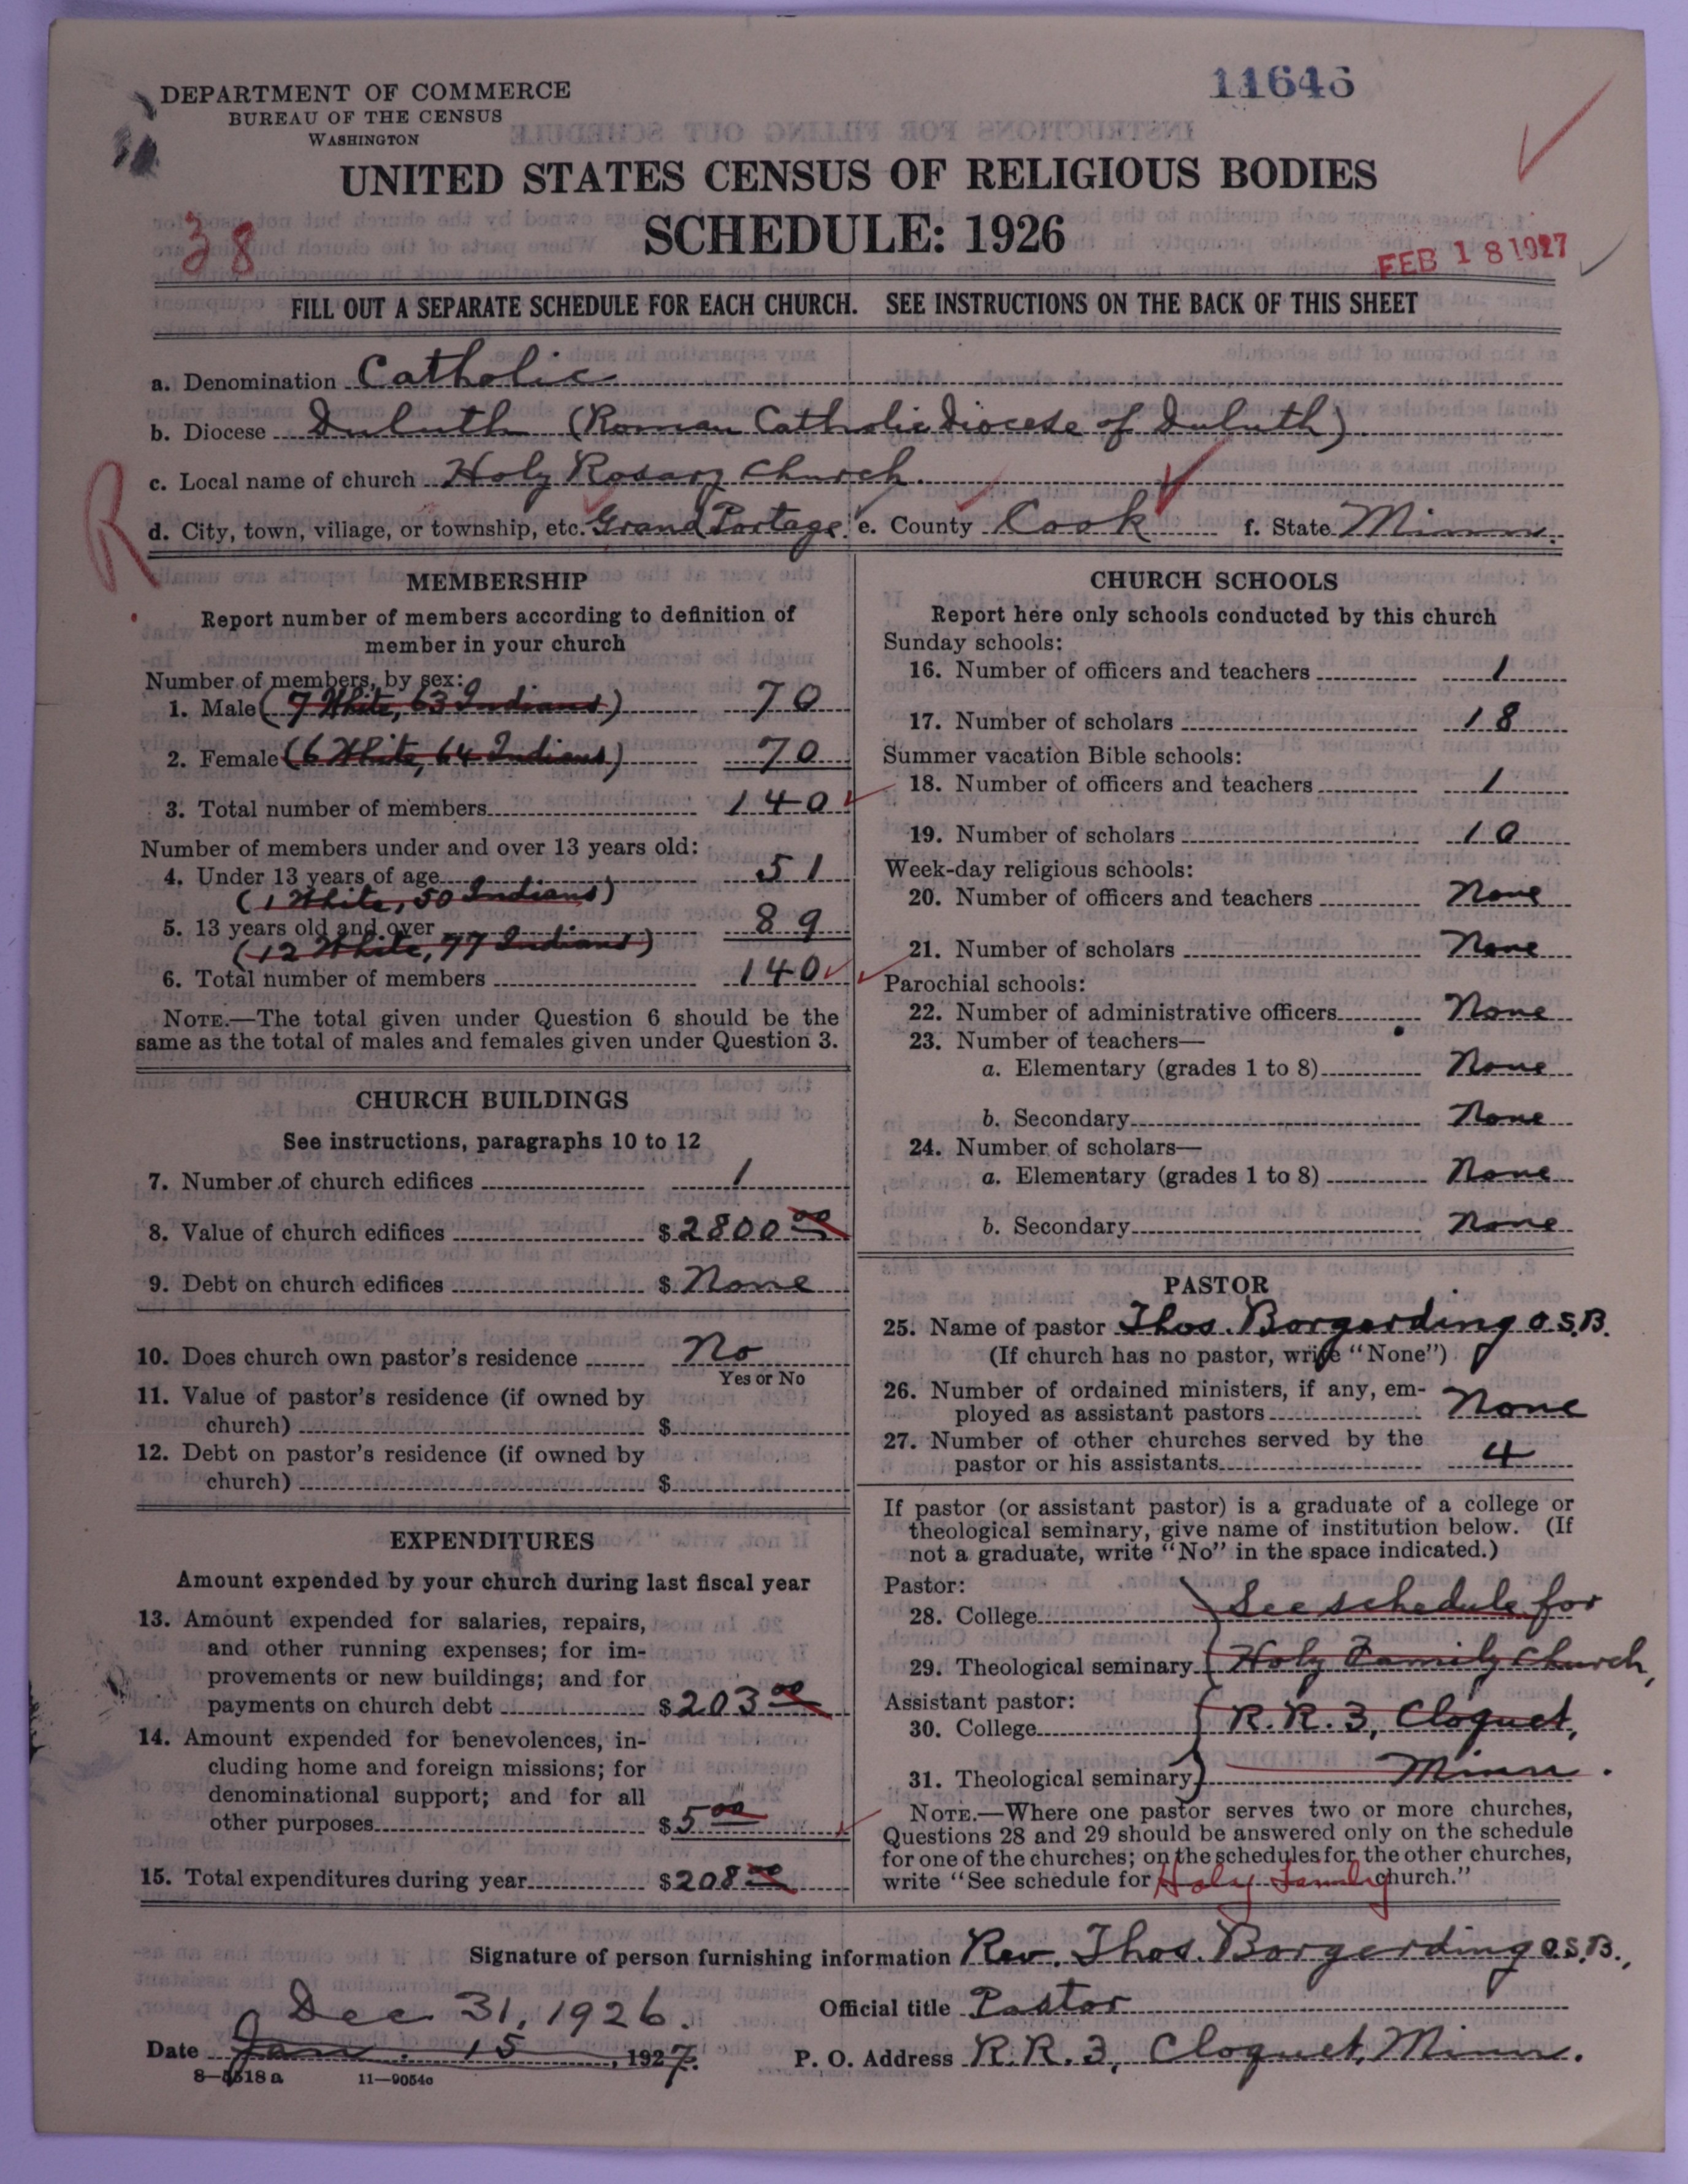 11646
DEPARTMENT OF COMMERCE
BUREAU OF THE CENSUS
WASHINGTON
UNITED STATES CENSUS OF RELIGIOUS BODIES
SCHEDULE: 1926
38
FEB 18 1927
FILL OUT A SEPARATE SCHEDULE FOR EACH CHURCH. SEE INSTRUCTIONS ON THE BACK OF THIS SHEET
a. Denomination Catholic
b. Diocese Duluth (Roman Catholic Diocese of Duluth)
c. Local name of church Holy Rosary Church.
R
d. City, town, village, or township, etc. Grand Portage. e. County Cook f. State Minn.
MEMBERSHIP
Report number of members according to definition of
member in your church
Number of members, by sex:
1. Male (7 White, 63 Indians) 70
2. Female (6 White, 64 Indians) 70
3. Total number of members 140
Number of members under and over 13 years old:
4. Under 13 years of age 51
(1 White, 50 Indians)
5. 13 years old and over 89
(12 White, 77 Indians)
6. Total number of members 140
NOTE.—The total given under Question 6 should be the
same as the total of males and females given under Question 3.
CHURCH BUILDINGS
See instructions, paragraphs 10 to 12
7. Number of church edifices 1
8. Value of church edifices $2800 00
9. Debt on church edifices $ None
10. Does church own pastor's residence No
Yes or No
11. Value of pastor's residence (if owned by
church) $
12. Debt on pastor's residence (if owned by
church) $
EXPENDITURES
Amount expended by your church during last fiscal year
13. Amount expended for salaries, repairs,
and other running expenses; for im-
provements or new buildings; and for
payments on church debt $203 00
14. Amount expended for benevolences, in-
cluding home and foreign missions; for
denominational support; and for all
other purposes $5 00
15. Total expenditures during year $208 00
CHURCH SCHOOLS
Report here only schools conducted by this church
Sunday schools:
16. Number of officers and teachers 1
17. Number of scholars 18
Summer vacation Bible schools:
18. Number of officers and teachers 1
19. Number of scholars 10
Week-day religious schools:
20. Number of officers and teachers None
21. Number of scholars None
Parochial schools:
22. Number of administrative officers None
23. Number of teachers—
a. Elementary (grades 1 to 8) None
b. Secondary None
24. Number of scholars—
a. Elementary (grades 1 to 8) None
b. Secondary None
PASTOR
25. Name of pastor Thos. Borgerding O.S.B.
(If church has no pastor, write "None")
26. Number of ordained ministers, if any, em-
ployed as assistant pastors None
27. Number of other churches served by the
pastor or his assistants 4
If pastor (or assistant pastor) is a graduate of a college or
theological seminary, give name of institution below. (If
not a graduate, write "No" in the space indicated.)
Pastor:
28. College See schedule for
29. Theological seminary Holy Family Church,
Assistant pastor:
30. College R.R. 3, Cloquet,
31. Theological seminary Minn.
NOTE.—Where one pastor serves two or more churches,
Questions 28 and 29 should be answered only on the schedule
for one of the churches; on the schedules for the other churches,
write "See schedule for Holy Family church."
Signature of person furnishing information Rev. Thos. Borgerding O.S.B.,
Dec. 31, 1926.
Official title Pastor
Date Jan. 15, 1927.
P. O. Address R.R. 3, Cloquet, Minn.
8—5518 a 11—9054c